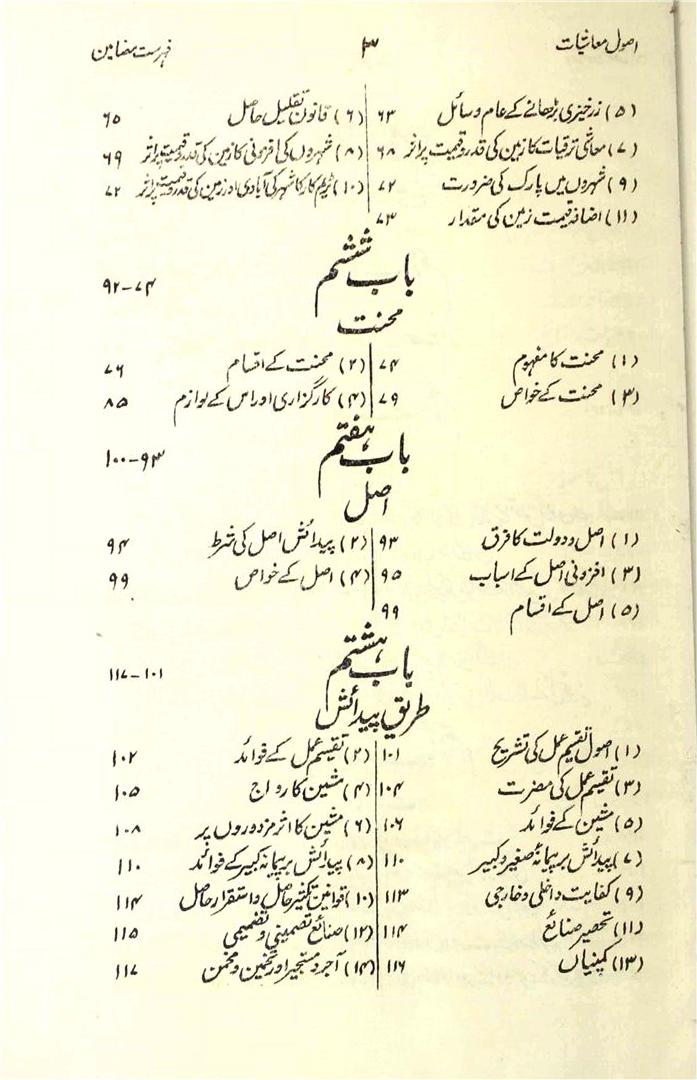 اصول معاشیات ۳ فہرست مضامین
(۵) زرخیزی بڑھانے کے عام وسائل ۶۳ (۶) قانون تقلیل حاصل ۶۵
(۷) معاشی ترقیات کا زمین کی قدر و قیمت پر اثر ۶۸ (۸) شہروں کی افزونی کا زمین کی قدر و قیمت پر اثر ۶۹
(۹) شہروں میں پارک کی ضرورت ۷۲ (۱۰) ٹریم کار کا شہر کی آبادی اور زمین کی قدر و قیمت پر اثر ۷۲
(۱۱) اضافہ قیمت زمین کی مقدار ۷۳
باب ششم ۷۴-۹۲
محنت
(۱) محنت کا مفہوم ۷۴ (۲) محنت کے اقسام ۷۶
(۳) محنت کے خواص ۷۹ (۴) کارگزاری اور اس کے لوازم ۸۵
باب ہفتم ۹۳-۱۰۰
اصل
(۱) اصل و دولت کا فرق ۹۳ (۲) پیدائش اصل کی شرط ۹۴
(۳) افزونی اصل کے اسباب ۹۵ (۴) اصل کے خواص ۹۹
(۵) اصل کے اقسام ۹۹
باب ہشتم ۱۰۱-۱۱۷
طریق پیدائش
(۱) اصول تقسیم عمل کی تشریح ۱۰۱ (۲) تقسیم عمل کے فوائد ۱۰۲
(۳) تقسیم عمل کی مضرت ۱۰۴ (۴) مشین کا رواج ۱۰۵
(۵) مشین کے فوائد ۱۰۶ (۶) مشین کا اثر مزدوروں پر ۱۰۸
(۷) پیدائش بر پیمانۂ صغیر و کبیر ۱۱۰ (۸) پیدائش بر پیمانہ کبیر کے فوائد ۱۱۰
(۹) کفایت داخلی و خارجی ۱۱۳ (۱۰) قوانین تکثیر حاصل و استقرار حاصل ۱۱۴
(۱۱) تحصیر صنائع ۱۱۴ (۱۲) صنائع تصمینی و تضمیمی ۱۱۵
(۱۳) کمپنیاں ۱۱۶ (۱۴) آجر و مستجیر اور تخمین و مخمن ۱۱۷